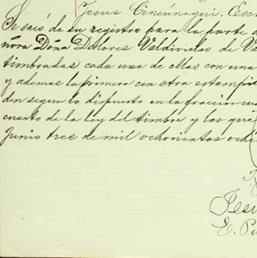 Jesus Cincúnegui, Escr
Se sacó de su registro para la parte d
ñora Doña Dolores Valdivielso de Va
timbradas cada una de ellas con una
y ademas la primera con otra estampil
don segun lo dispuesto en la fraccion cua
cuarto de la ley del timbre y las que
Junio trece de mil ochocientos och
Jesu
E. P